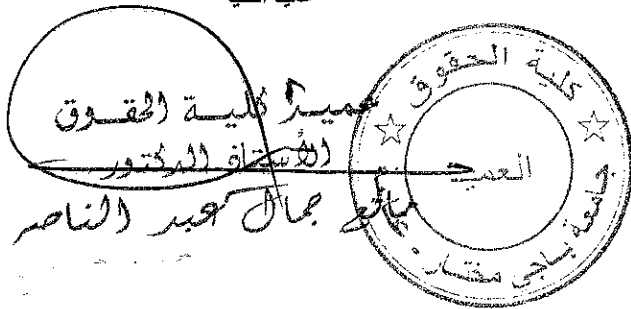 عميد كلية الحقوق
الأستاذ الدكتور
مانع جمال عبد الناصر
كلية الحقوق
العميد
جامعة باجي مختار